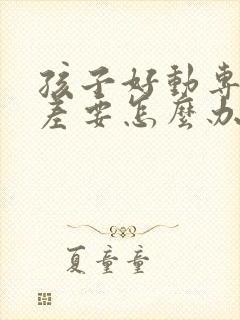 孩子好動專
差要怎麼办
夏童童